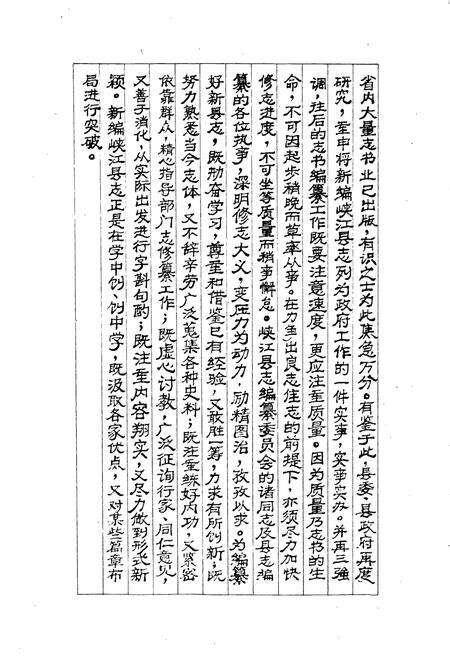 省内大量志书业已出版，有识之士为此焦急万分。有鉴于此，县委、县政府再度
研究，坚申将新编峡江县志列为政府工作的一件实事，实事实办。并再三强
调，往后的志书编纂工作既要注意速度，更应注重质量。因为质量乃志书的生
命，不可因起步稍晚而草率从事。在力主出良志佳志的前提下，亦须尽力加快
修志进度，不可坐等质量而稍事懈怠。峡江县志编纂委员会的诸同志及县志编
纂的各位执事，深明修志大义，变压力为动力，励精图治，孜孜以求。为编纂
好新县志，既刻奋学习，尊重和借鉴已有经验，又敢胜一筹，力求有所创新；既
努力熟悉当今志体，又不辞辛劳广泛蒐集各种史料；既注重练好内功，又紧密
依靠群众，精心指导部门志修纂工作；既虚心讨教，广泛征询行家、同仁意见，
又善于消化，从实际出发进行字斟句酌；既注重内容翔实，又尽力做到形式新
颖。新编峡江县志正是在学中创、创中学，既汲取各家优点，又对某些篇章布
局进行突破。